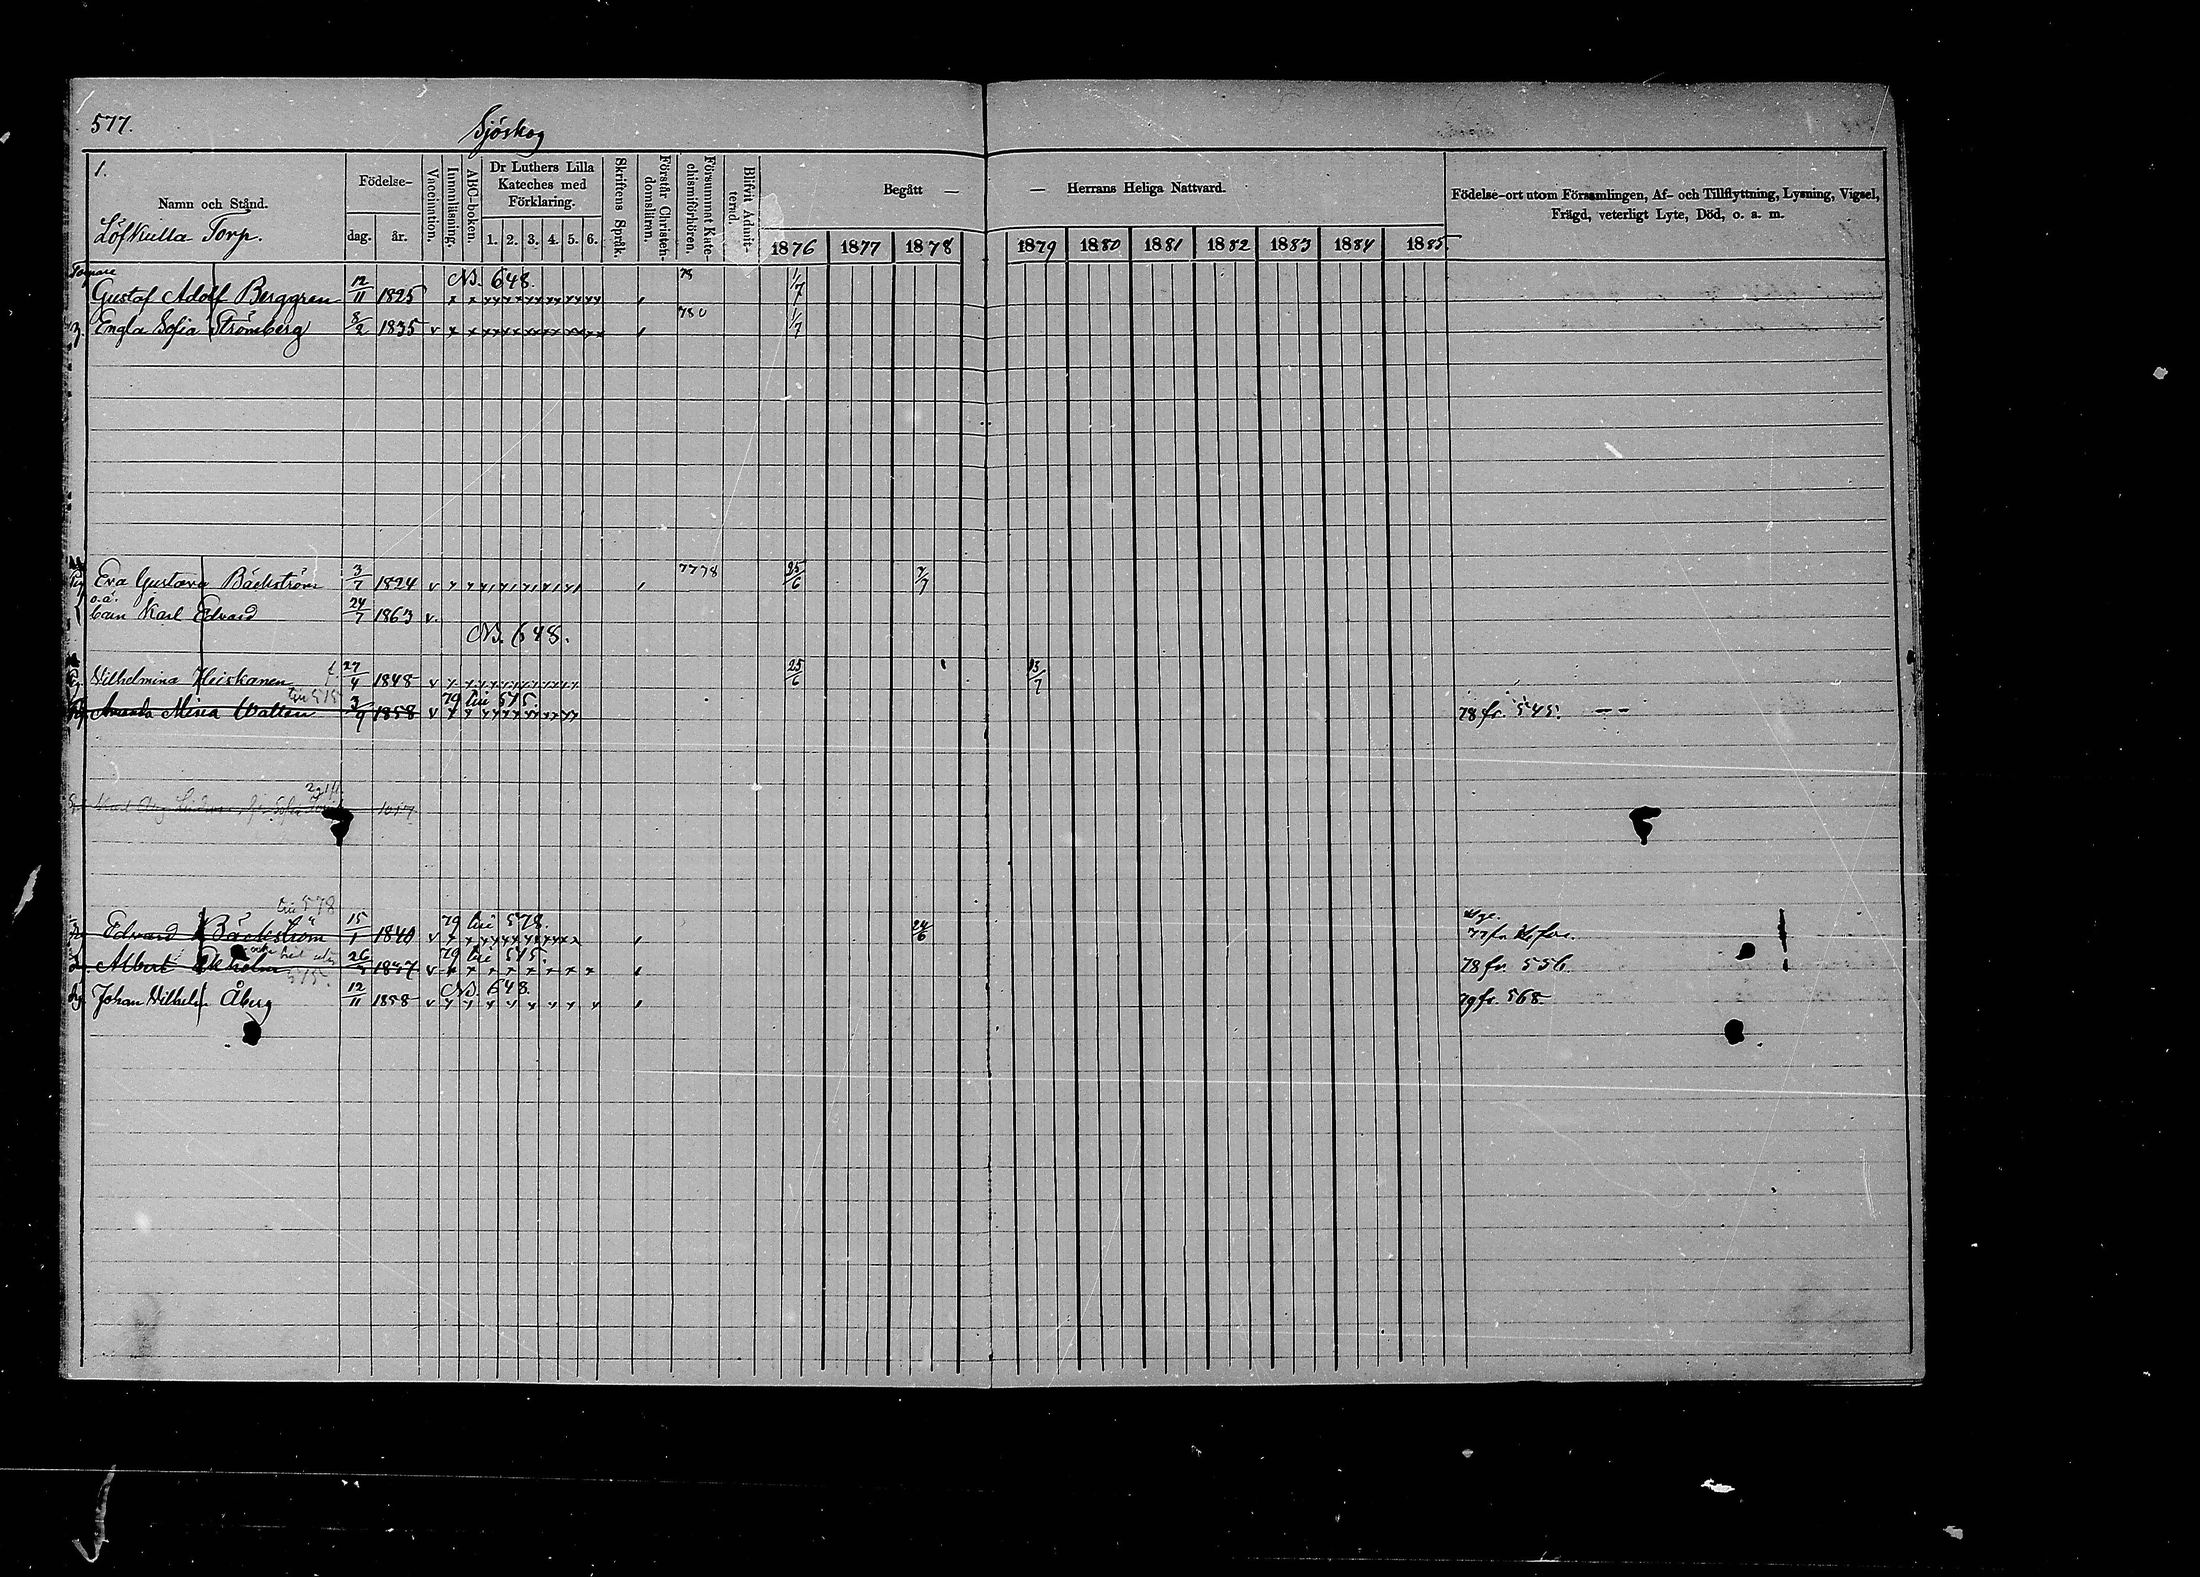 577.
Sjöskog
1.
Namn och Stånd.
Löfkulla Torp.
Födelse-
dag. år.
Vaccination.
Innanläsning.
ABC-boken.
Dr Luthers Lilla
Kateches med
Förklaring.
1. 2. 3. 4. 5. 6.
Skriftens Språk.
Förstår Christen-
domslärnn.
Försummat Kate-
chismiförhören.
Blifvit Admit-
terad.
Begått —
— Herrans Heliga Nattvard.
1876 1877 1878 1879 1880 1881 1882 1883 1884 1885
Födelse-ort utom Församlingen, Af- och Tillflyttning, Lysning, Vigsel,
Frägd, veterligt Lyte, Död, o. a. m.
Torpare
NB. 648.
Gustaf Adolf Berggren 12/11 1825 78 1/7
Engla Sofia Strömberg 8/2 1835 v 780 1/7
Eva Gustava Bäckström 3/7 1824 v 7778 25/6 7/7
o.ä.
barn Karl Edvard 24/7 1863 v.
NB. 648.
Vilhelmina Heiskanen 27/4 1848 v 25/6 13/7
till 515
79 till 515.
Amanda Mina Wallen 3/9 1858 v 78 fr. 545. – –
till 578
79 till 578.
Edvard Bäckström 15/1 1840 v 24/6 77 fr.
79 till 515.
Albert Ekholm 1837 v 78 fr. 556.
515.
NB. 648.
Johan Vilhelm Åberg 12/11 1858 v 79 fr. 568.